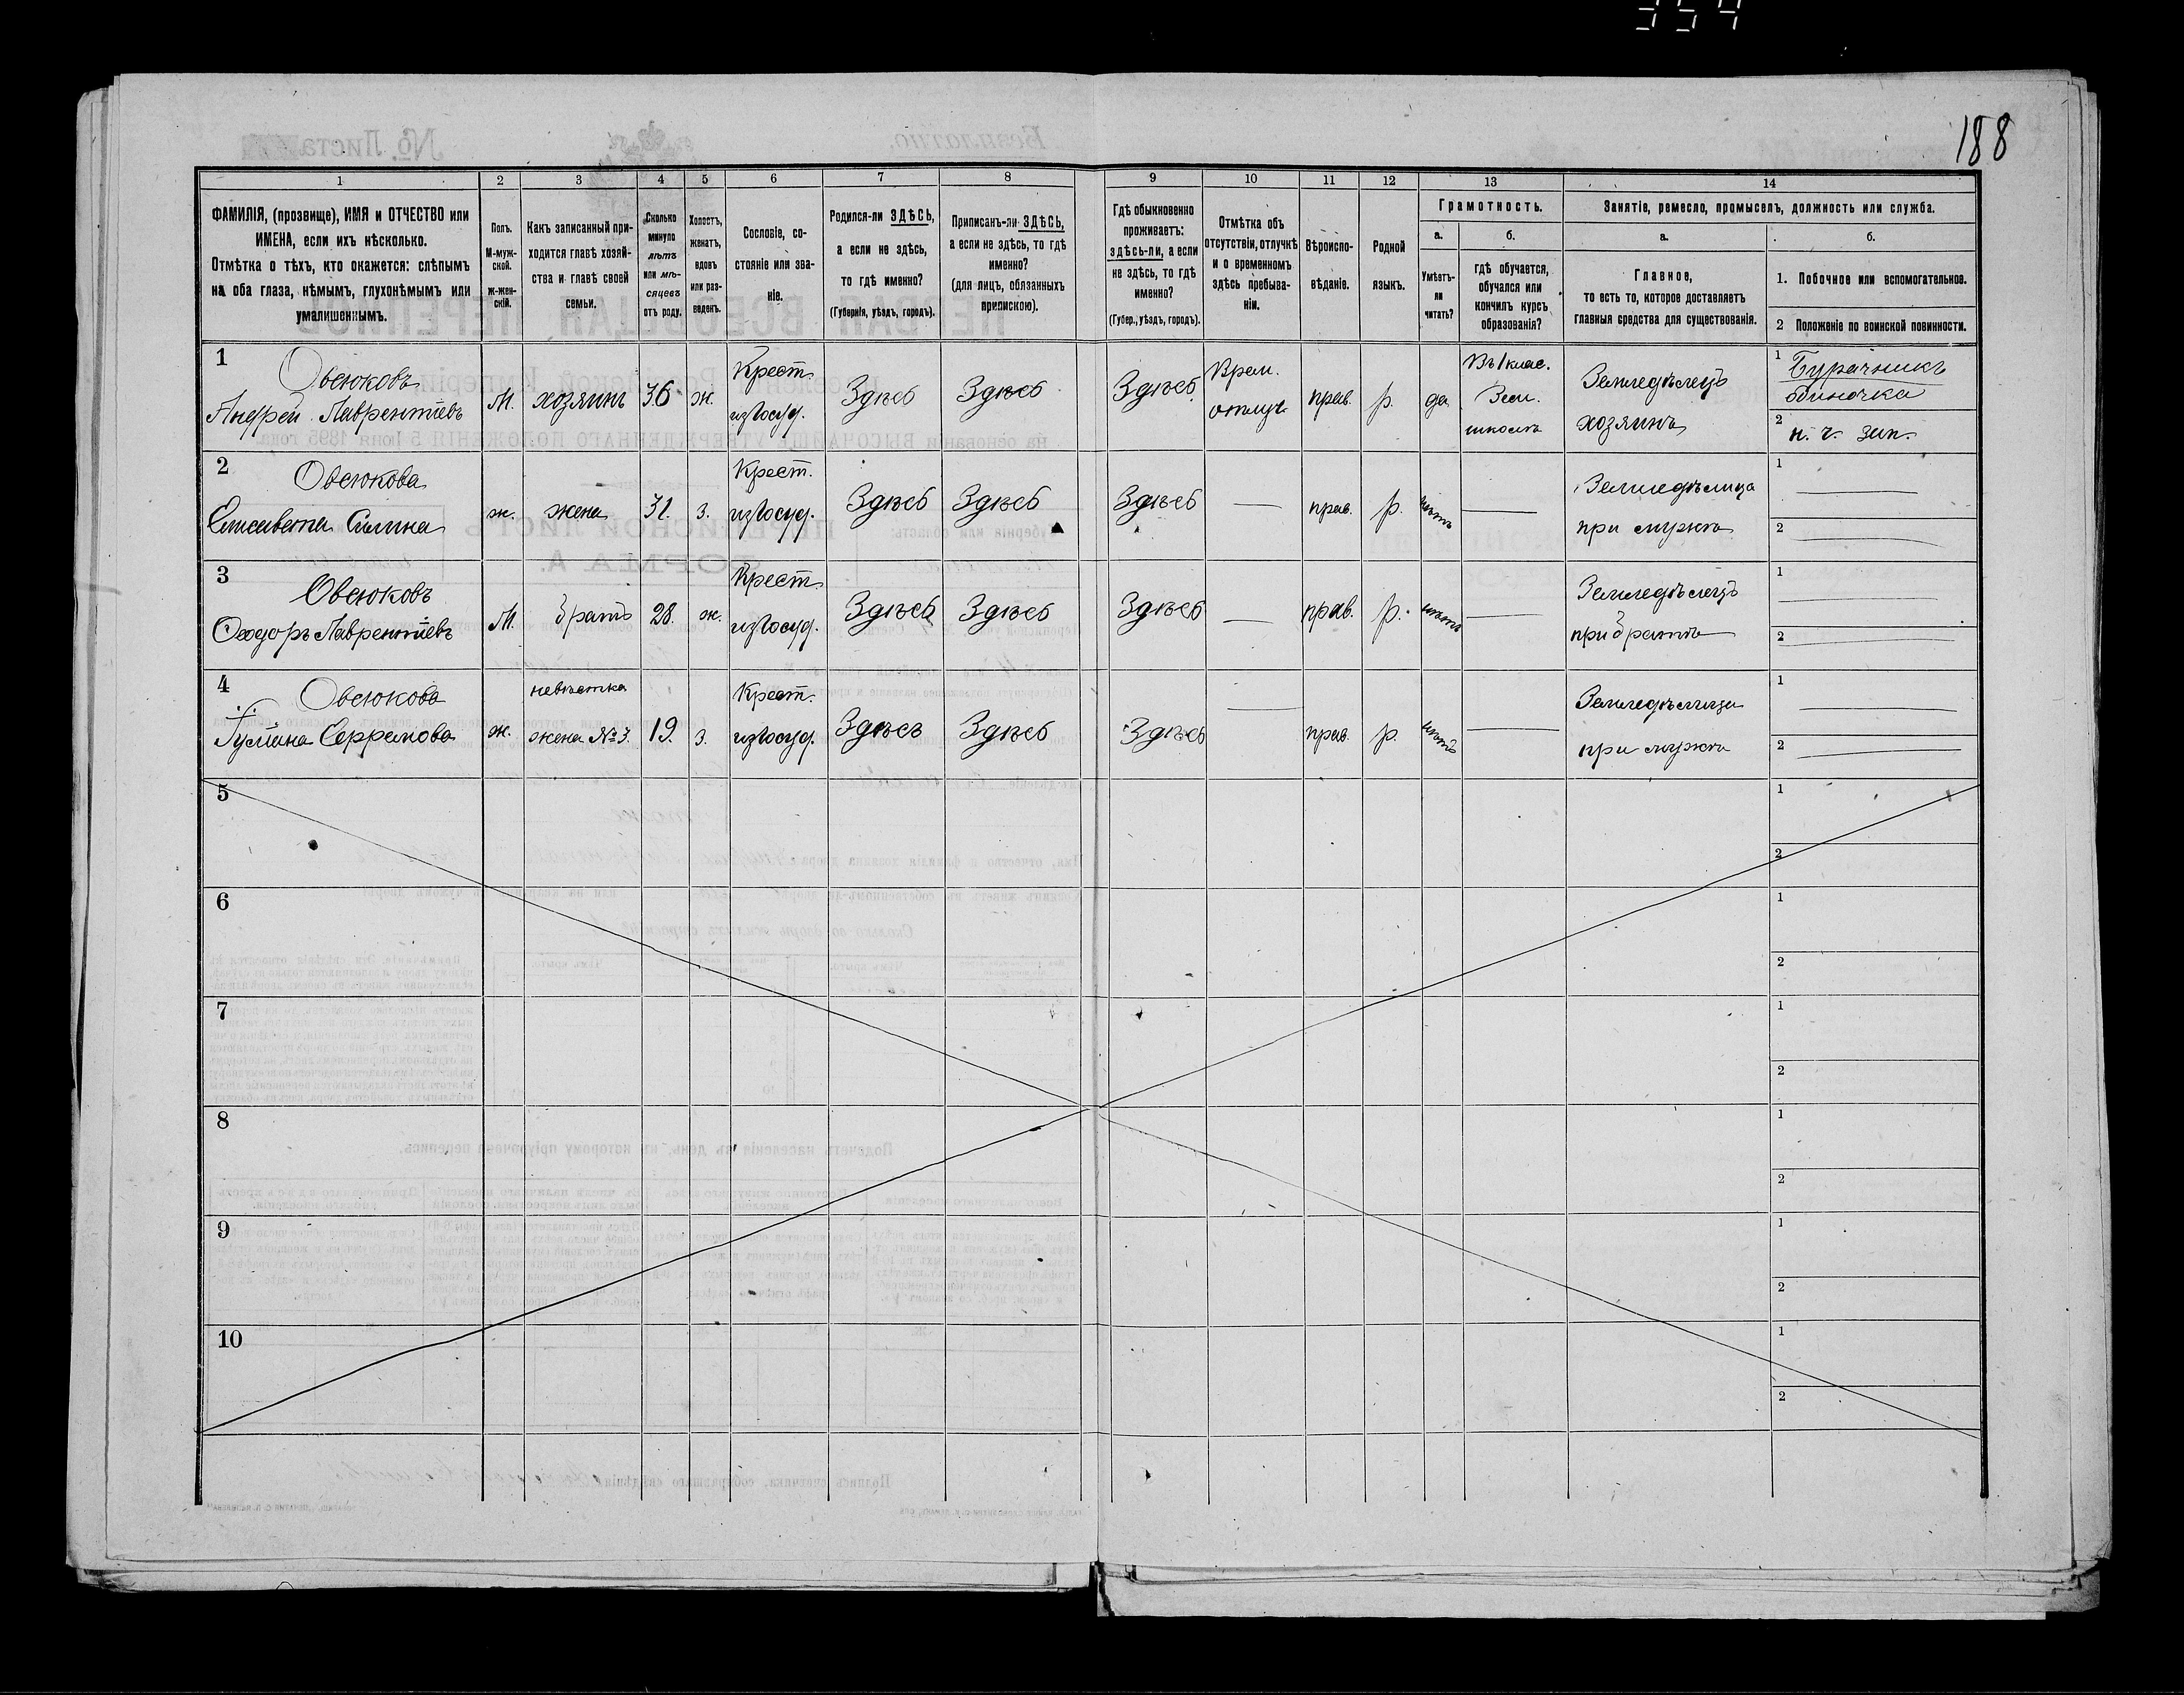 354
188
1 2 3 4 5 6 7 8 9 10 11 12 13 14
ФАМИЛІЯ, (прозвище), ИМЯ и ОТЧЕСТВО или
ИМЕНА, если ихъ нѣсколько.
Отмѣтка о тѣхъ, кто окажется: слѣпымъ
на оба глаза, нѣмымъ, глухонѣмымъ или
умалишеннымъ.
Полъ.
М-муж-
ской.
ж-жен-
скій.
Какъ записанный при-
ходится главѣ хозяй-
ства и главѣ своей
семьи.
Сколько
минуло
лѣтъ
или мѣ-
сяцевъ
отъ роду.
Холостъ,
женатъ,
вдовъ
или раз-
веденъ.
Сословіе, со-
стояніе или зва-
ніе.
Родился-ли ЗДѢСЬ,
а если не здѣсь,
то гдѣ именно?
(Губернія, уѣздъ, городъ).
Приписанъ-ли ЗДѢСЬ,
а если не здѣсь, то гдѣ
именно?
(для лицъ, обязанныхъ
припискою).
Гдѣ обыкновенно
проживаетъ:
здѣсь-ли, а если
не здѣсь, то гдѣ
именно?
(Губер., уѣздъ, городъ).
Отмѣтка объ
отсутствіи, отлучкѣ
и о временномъ
здѣсь пребыва-
ніи.
Вѣроиспо-
вѣданіе.
Родной
языкъ.
Грамотность.
а.
Умѣетъ-
ли
читать?
б.
гдѣ обучается,
обучался или
кончилъ курсъ
образованія?
Занятіе, ремесло, промыселъ, должность или служба.
а.
Главное,
то есть то, которое доставляетъ
главныя средства для существованія.
б.
1. Побочное или вспомогательное.
2 Положеніе по воинской повинности.
1
Овсюковъ
Андрей Лаврентіевъ
М.
хозяинъ
36
ж.
Крест.
изъ госуд.
Здѣсь
Здѣсь
Здѣсь
Врем.
отлуч.
прав.
р.
да
Въ 1 клас.
Зем.
школѣ
Земледѣлецъ
хозяинъ
1
одиночка
2 н. ч. зап.
2
Овсюкова
Елисавета Силина
ж.
жена
31.
з.
Крест.
изъ госуд.
Здѣсь
Здѣсь
Здѣсь
прав.
р.
нѣтъ
Земледѣлица
при мужѣ
1
2
3
Овсюковъ
Ѳеодоръ Лаврентіевъ
М.
братъ
28.
ж.
Крест.
изъ госуд.
Здѣсь
Здѣсь
Здѣсь
прав.
р.
нѣтъ
Земледѣлецъ
при братѣ
1
2
4
Овсюкова
ж.
невѣстка
жена №3
19.
з.
Крест.
изъ госуд.
Здѣсь
Здѣсь
Здѣсь
прав.
р.
нѣтъ
Земледѣлица
при мужѣ
1
2
5
1
2
6
1
2
7
1
2
8
1
2
9
1
2
10
1
2